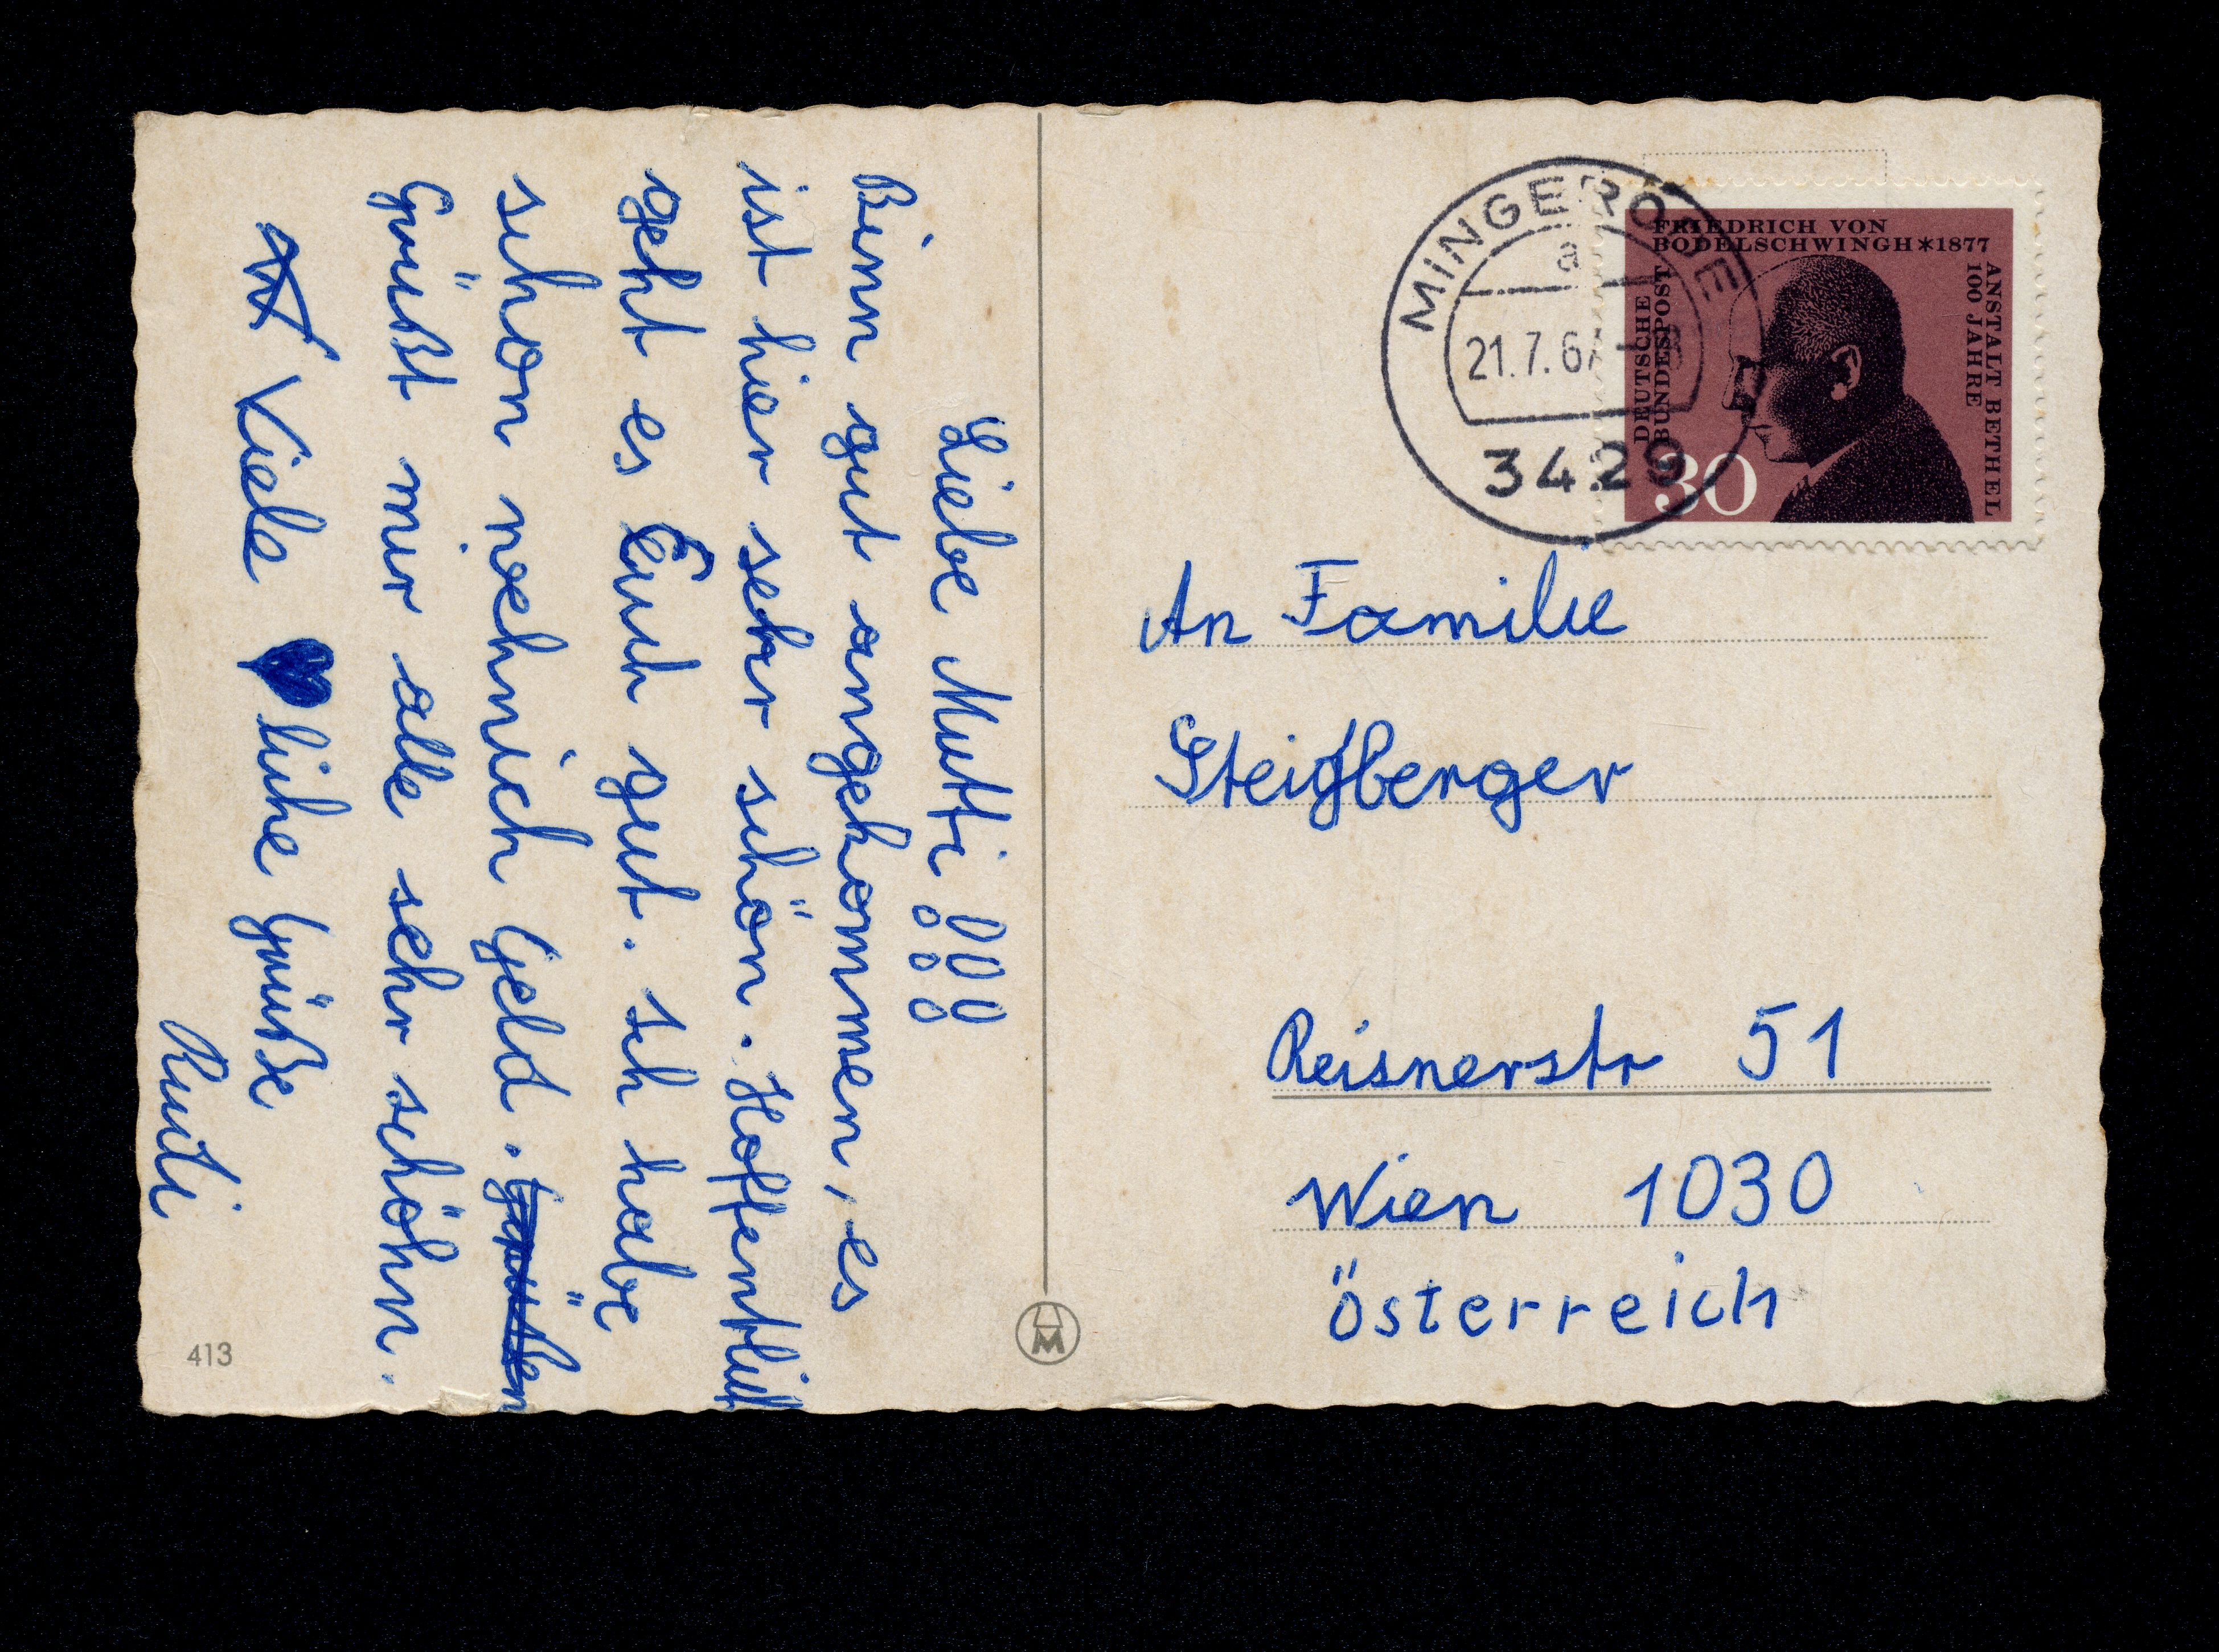 Liebe Mutti!!!
Binn gut angekommen, es
ist hier sehr schön. Hoffentlich
geht es Euch gut. ich habe
schon riechnich Geld.
Grüßt mir alle sehr schöhn.
Viele ♥liche Grüße
Rudi
413
MINGERODE
a
21.7.67
3429
FRIEDRICH VON
BODELSCHWINGH*1877
ANSTALT BETHEL
100 JAHRE
DEUTSCHE
BUNDESPOST
30
An Familie
Steigberger
Reisnerstr 51
Wien 1030
Österreich
M